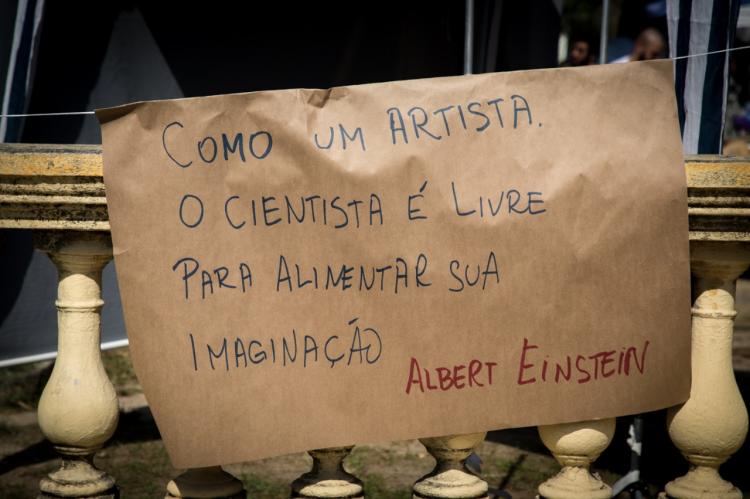 COMO UM ARTISTA.
O CIENTISTA É LIVRE
PARA ALIMENTAR SUA
IMAGINAÇÃO
ALBERT EINSTEIN